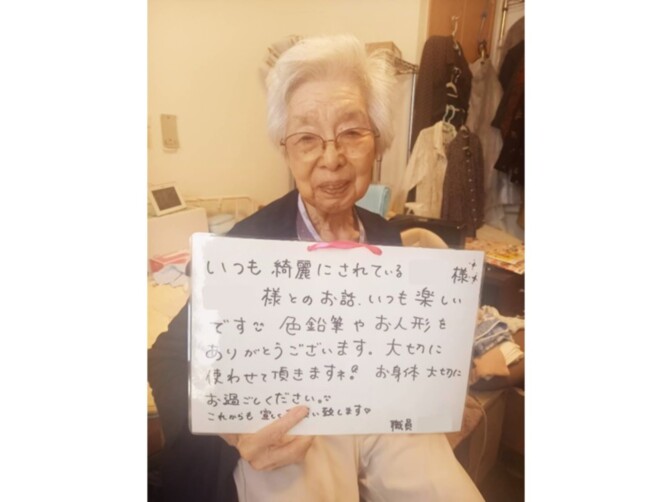 いつも 綺麗にされている 様
様とのお話、いつも楽しい
です 色鉛筆やお人形を
ありがとうございます。大切に
使わせて頂きますネ! お身体 大切に
お過ごしください。
これからも 宜しく い致します
職員